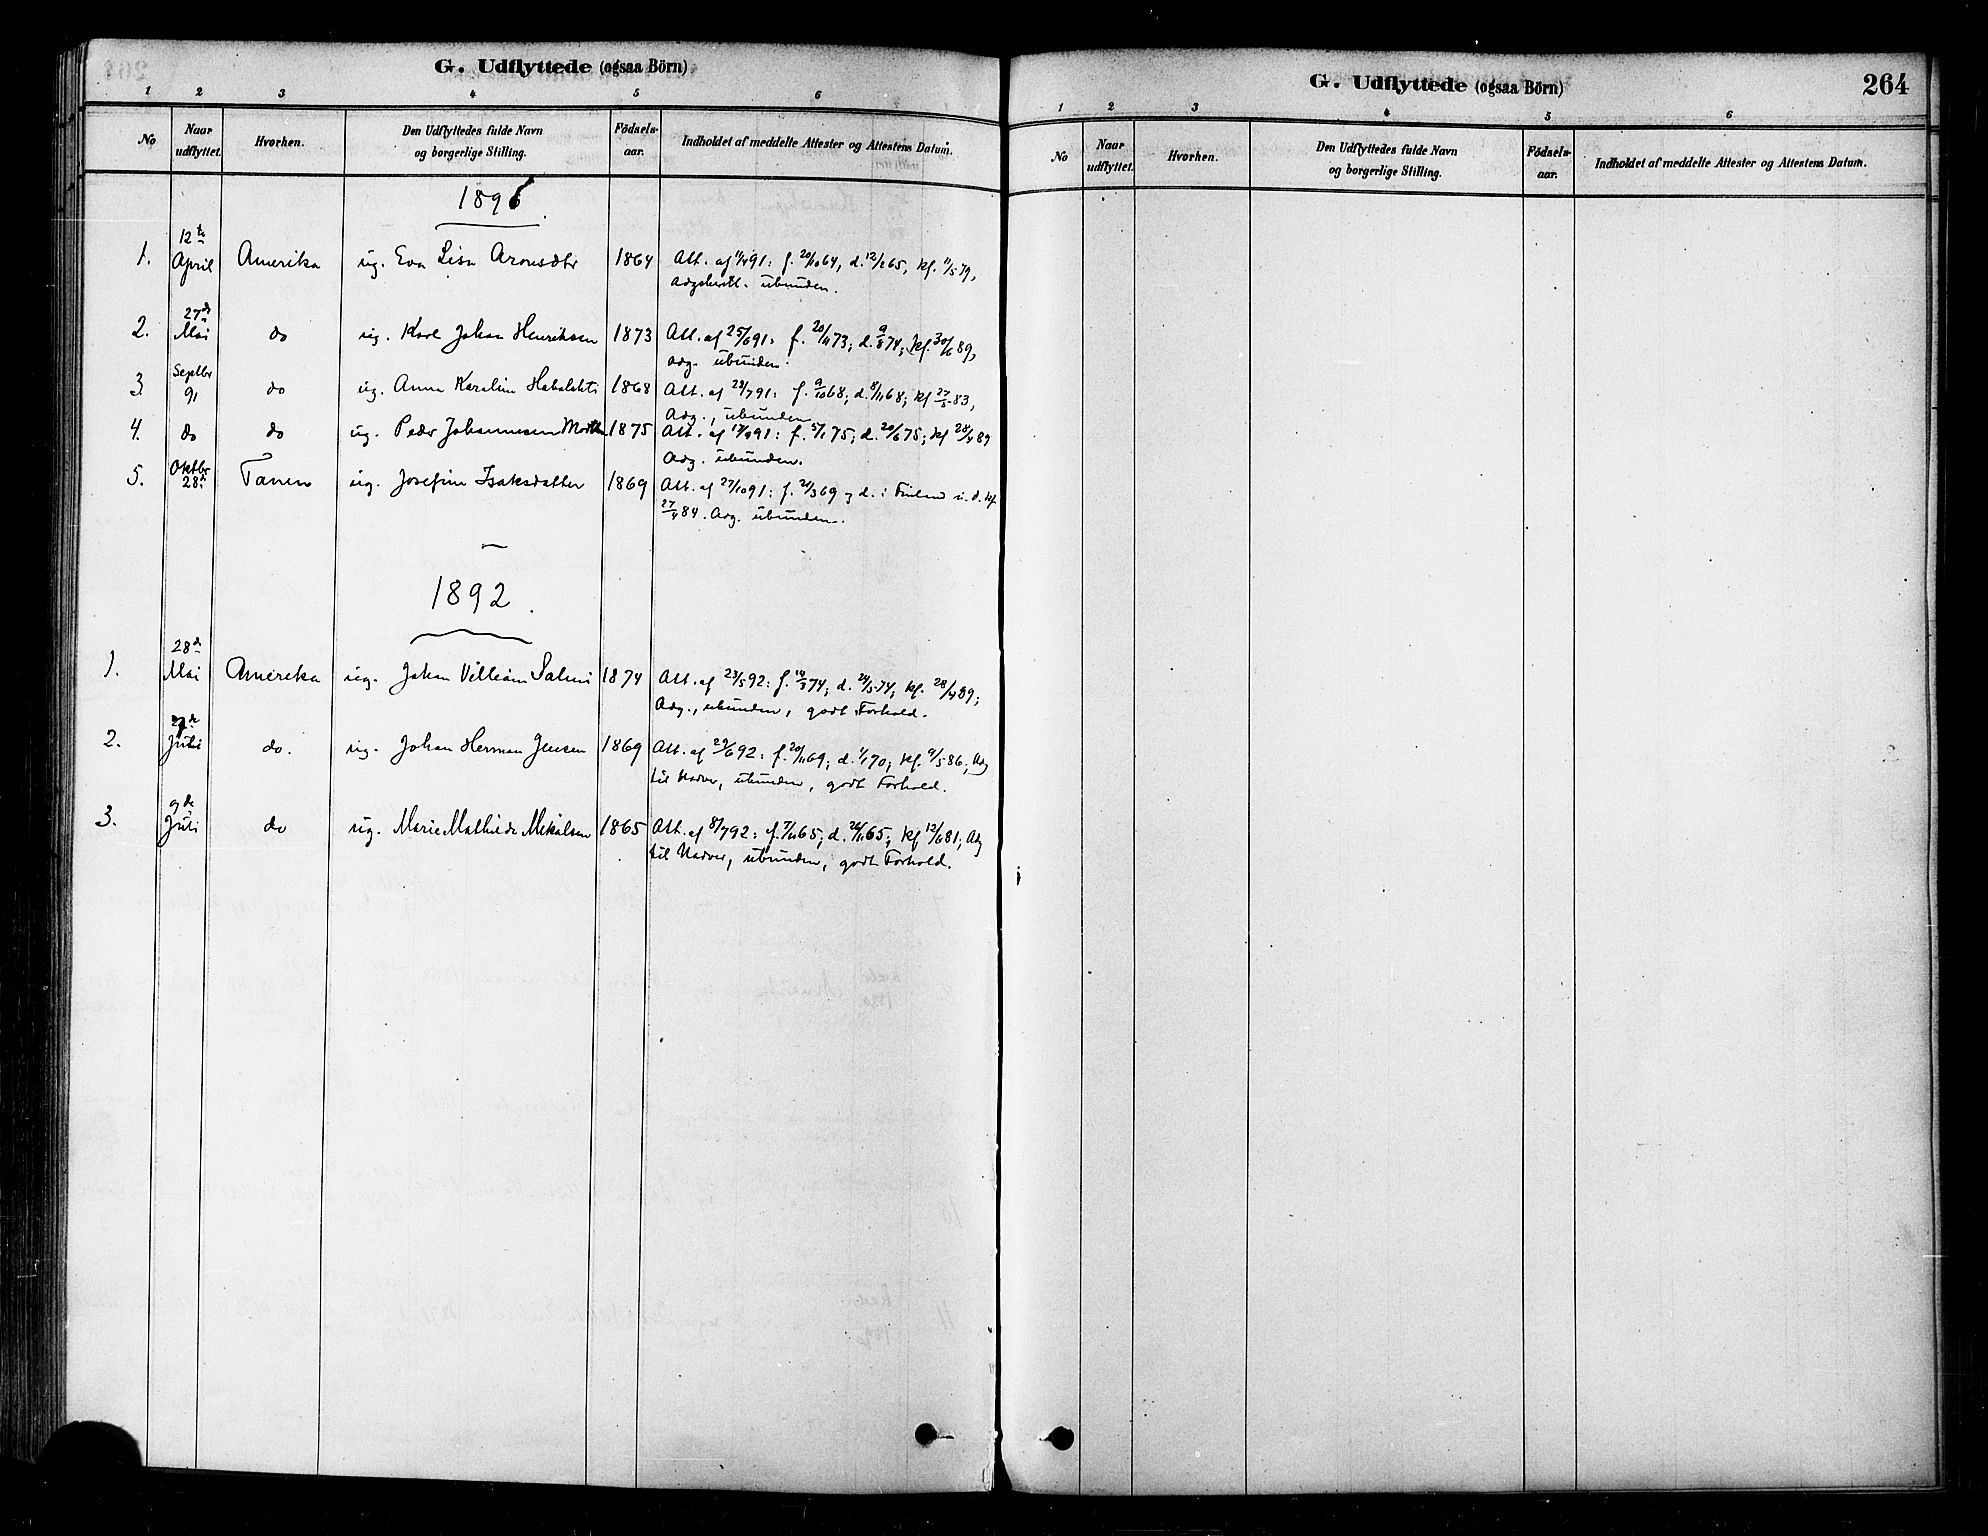 G. Udflyttede (ogsaa Börn)
1 2 3 4 5 6
No
Naar udflyttet.
Hvorhen.
Den Udflyttedes fulde Navn og borgerlige Stilling.
Födsels-aar.
Indholdet af meddelte Attester og Attestens Datum.
1891
1. 12te April Amerika ug. Eva Lisa Aronsdtr 1864 Att. af 11/4 91: f. 20/10 64, d. 12/2 65, kf. 11/5 79,
ubunden.
2. 27de Mai do ug. Karl Johan Henriksen 1873 Att. af 25/6 91: f. 20/11 73; d. 9/8 74; kf. 30/6 89,
adg. ubunden.
3. Septbr 91 do ug. Anna Karolin 1868 Att. af 28/7 91: f. 9/10 68; d. 8/11 68; kf 27/5 83,
Adg., ubunden
4. do do ug. Peder Johannesen 1875 Att. af 17/9 91: f. 5/1 75; d. 20/6 75; kf 28/4 89
Adg. ubunden.
5. Oktbr 28de Tanen ug. Josefine Isaksdatter 1869 Att. af 27/10 91: f. 21/3 69 og d. i Finland kf.
27/4 84. Adg. ubunden.
1892.
1. 28de Mai Amerika ug. Johan Villiam Salmi 1874 Att. af 23/5 92: f. 19/3 74; d. 24/5 74; kf. 28/4 89;
Adg., ubunden, godt Forhold.
2. Juli do. ug. Johan Herman Jensen 1869 Att. af 29/6 92: f. 20/11 69; d. 1/1 70; kf. 9/5 86; Adg
til Nadver, ubunden, godt Forhold.
3. 9de Juli do ug. Marie Mathilde Mikalsen 1865 Att. af 8/7 92: f. 7/11 65; d. 26/11 65; kf 12/6 81; Adg
til Nadver, ubunden, godt Forhold.
G. Udflyttede (ogsaa Börn)
264
1 2 3 4 5 6
No
Naar udflyttet.
Hvorhen.
Den Udflyttedes fulde Navn og borgerlige Stilling.
Födsels-aar.
Indholdet af meddelte Attester og Attestens Datum.